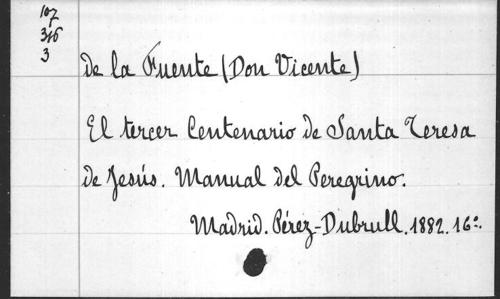 107
316
3
de la Fuente (Don Vicente)
El tercer Centenario de Santa Teresa
de Jesús. Manual del Peregrino.
Madrid. Pérez-Dubrull. 1882. 16º.